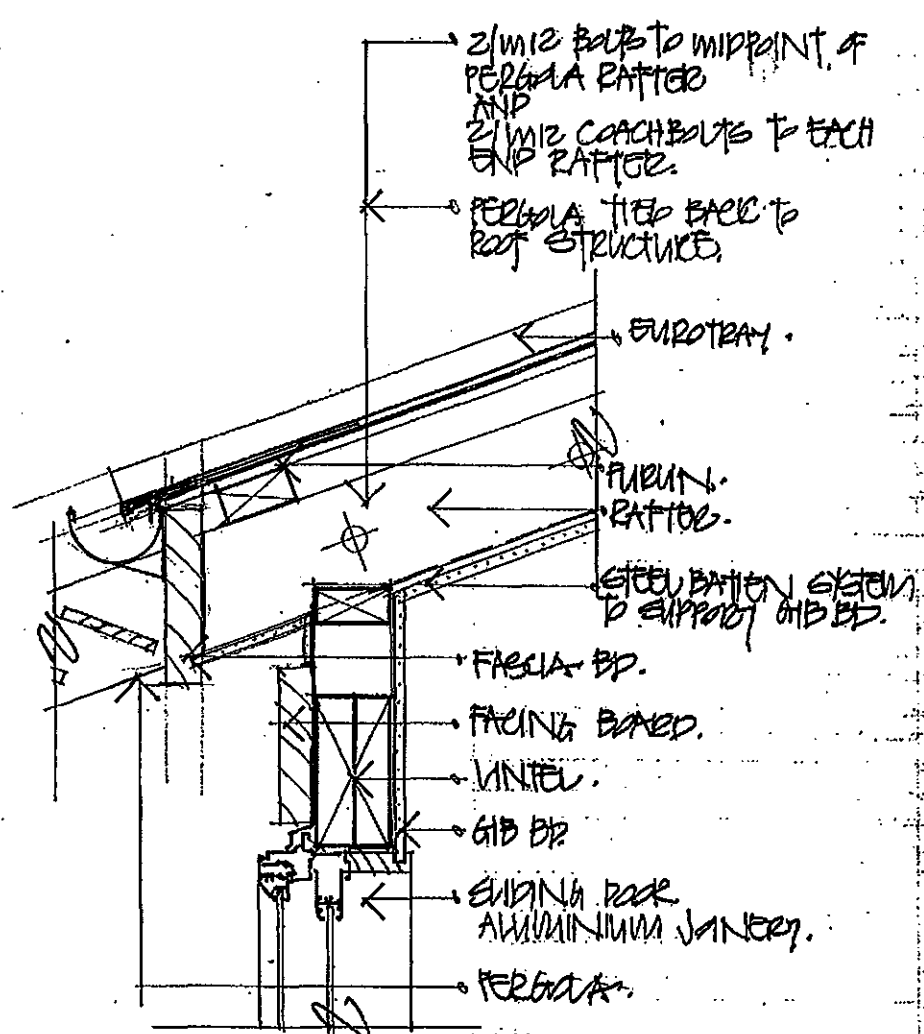 2/M12 BOLTS TO MIDPOINT OF
PERGOLA RAFTER
AND
2/M12 COACHBOLTS TO EACH
END RAFTER.
PERGOLA TIED BACK TO
ROOF STRUCTURE.
EUROTRAY.
PURLIN.
RAFTER.
STEEL BATTEN SYSTEM
TO SUPPORT GIB BD.
FASCIA BD.
FACING BOARD.
LINTEL.
GIB BD.
SLIDING DOOR
ALUMINIUM JOINERY.
PERGOLA.